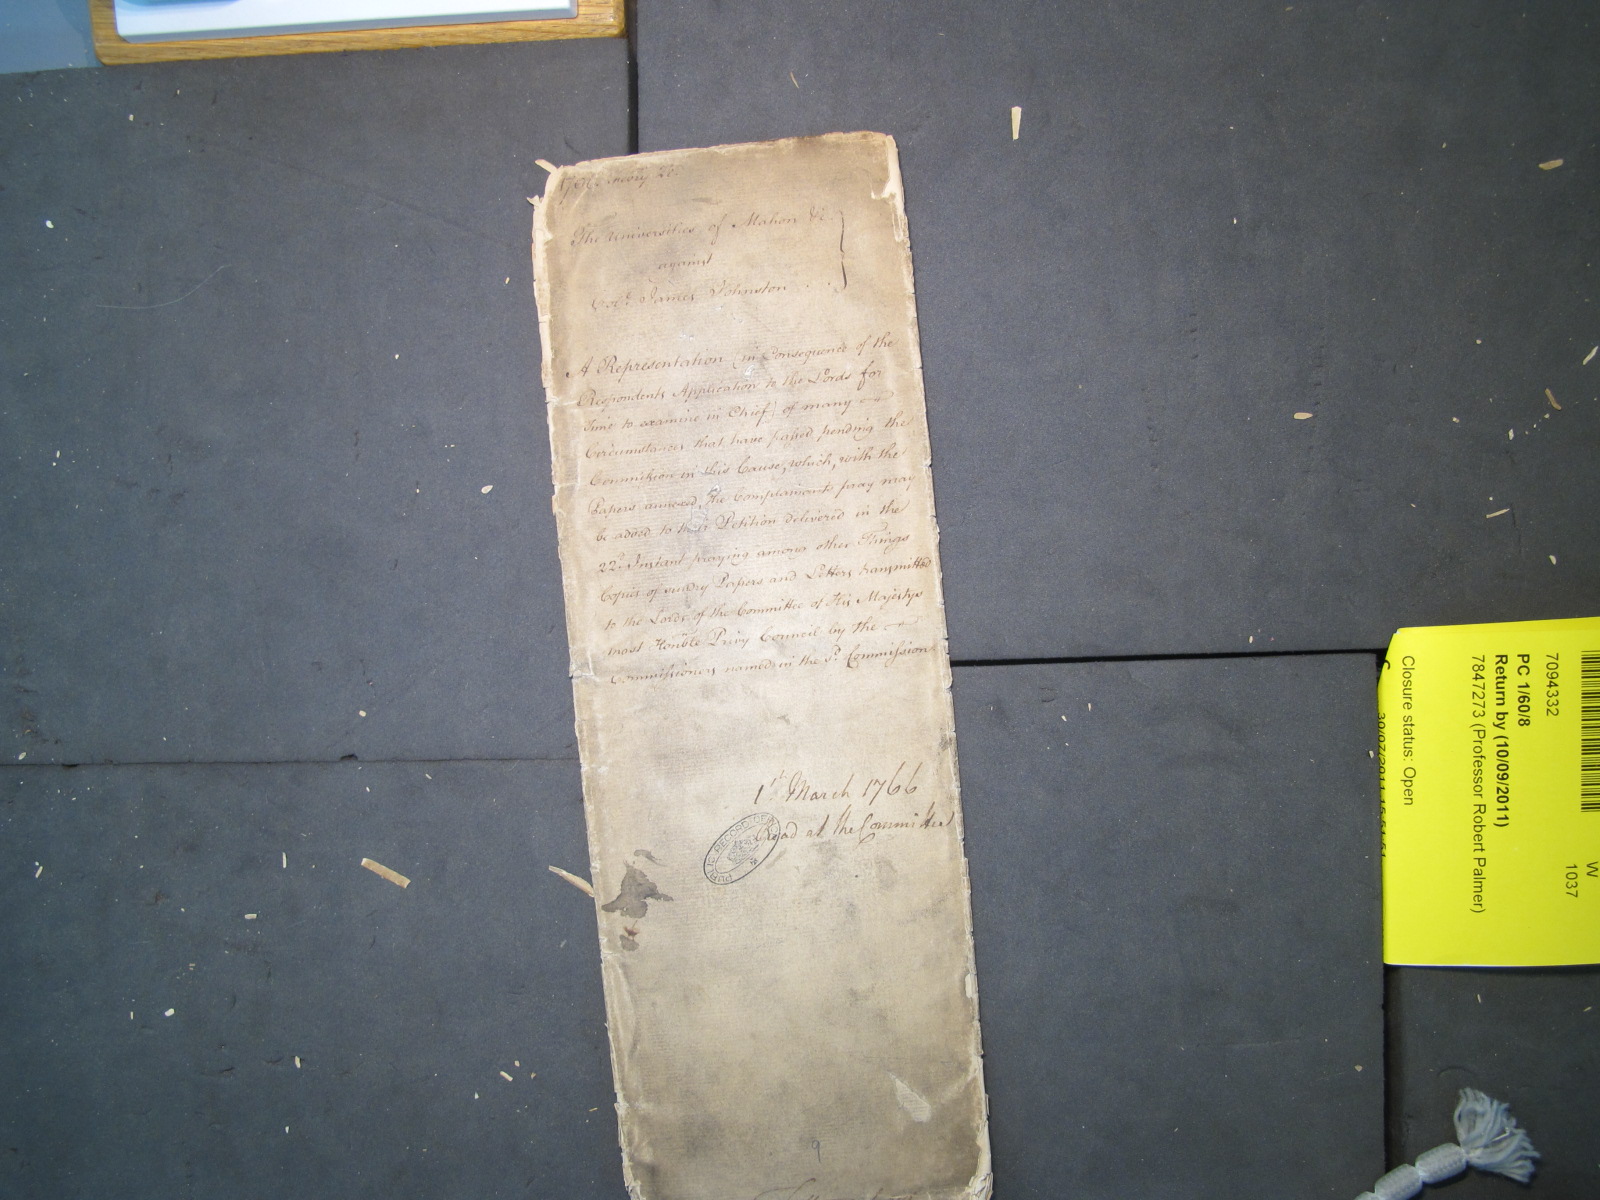 The Universities of Mahon &c.
against
Col.º James Johnston
A Representation (in Consequence of the
Respondents Application to the Lords for
Time to examine in Chief) of many
Circumstances that have passed pending the
Commission in this Cause, which, with the
Papers annexed, the Complainants pray may
be added to their Petition delivered in the
22.d Instant praying among other Things
Copies of sundry Papers and Letters transmitted
to the Lords of the Committee of His Majestys
most Honble Privy Council by the
Commissioners named in the sd. Commission
1st March 1766
Read at the Committee
PUBLIC RECORD OFFICE
9
W
1037
7094332
PC 1/60/8
Return by (10/09/2011)
7847273 (Professor Robert Palmer)
Closure status: Open